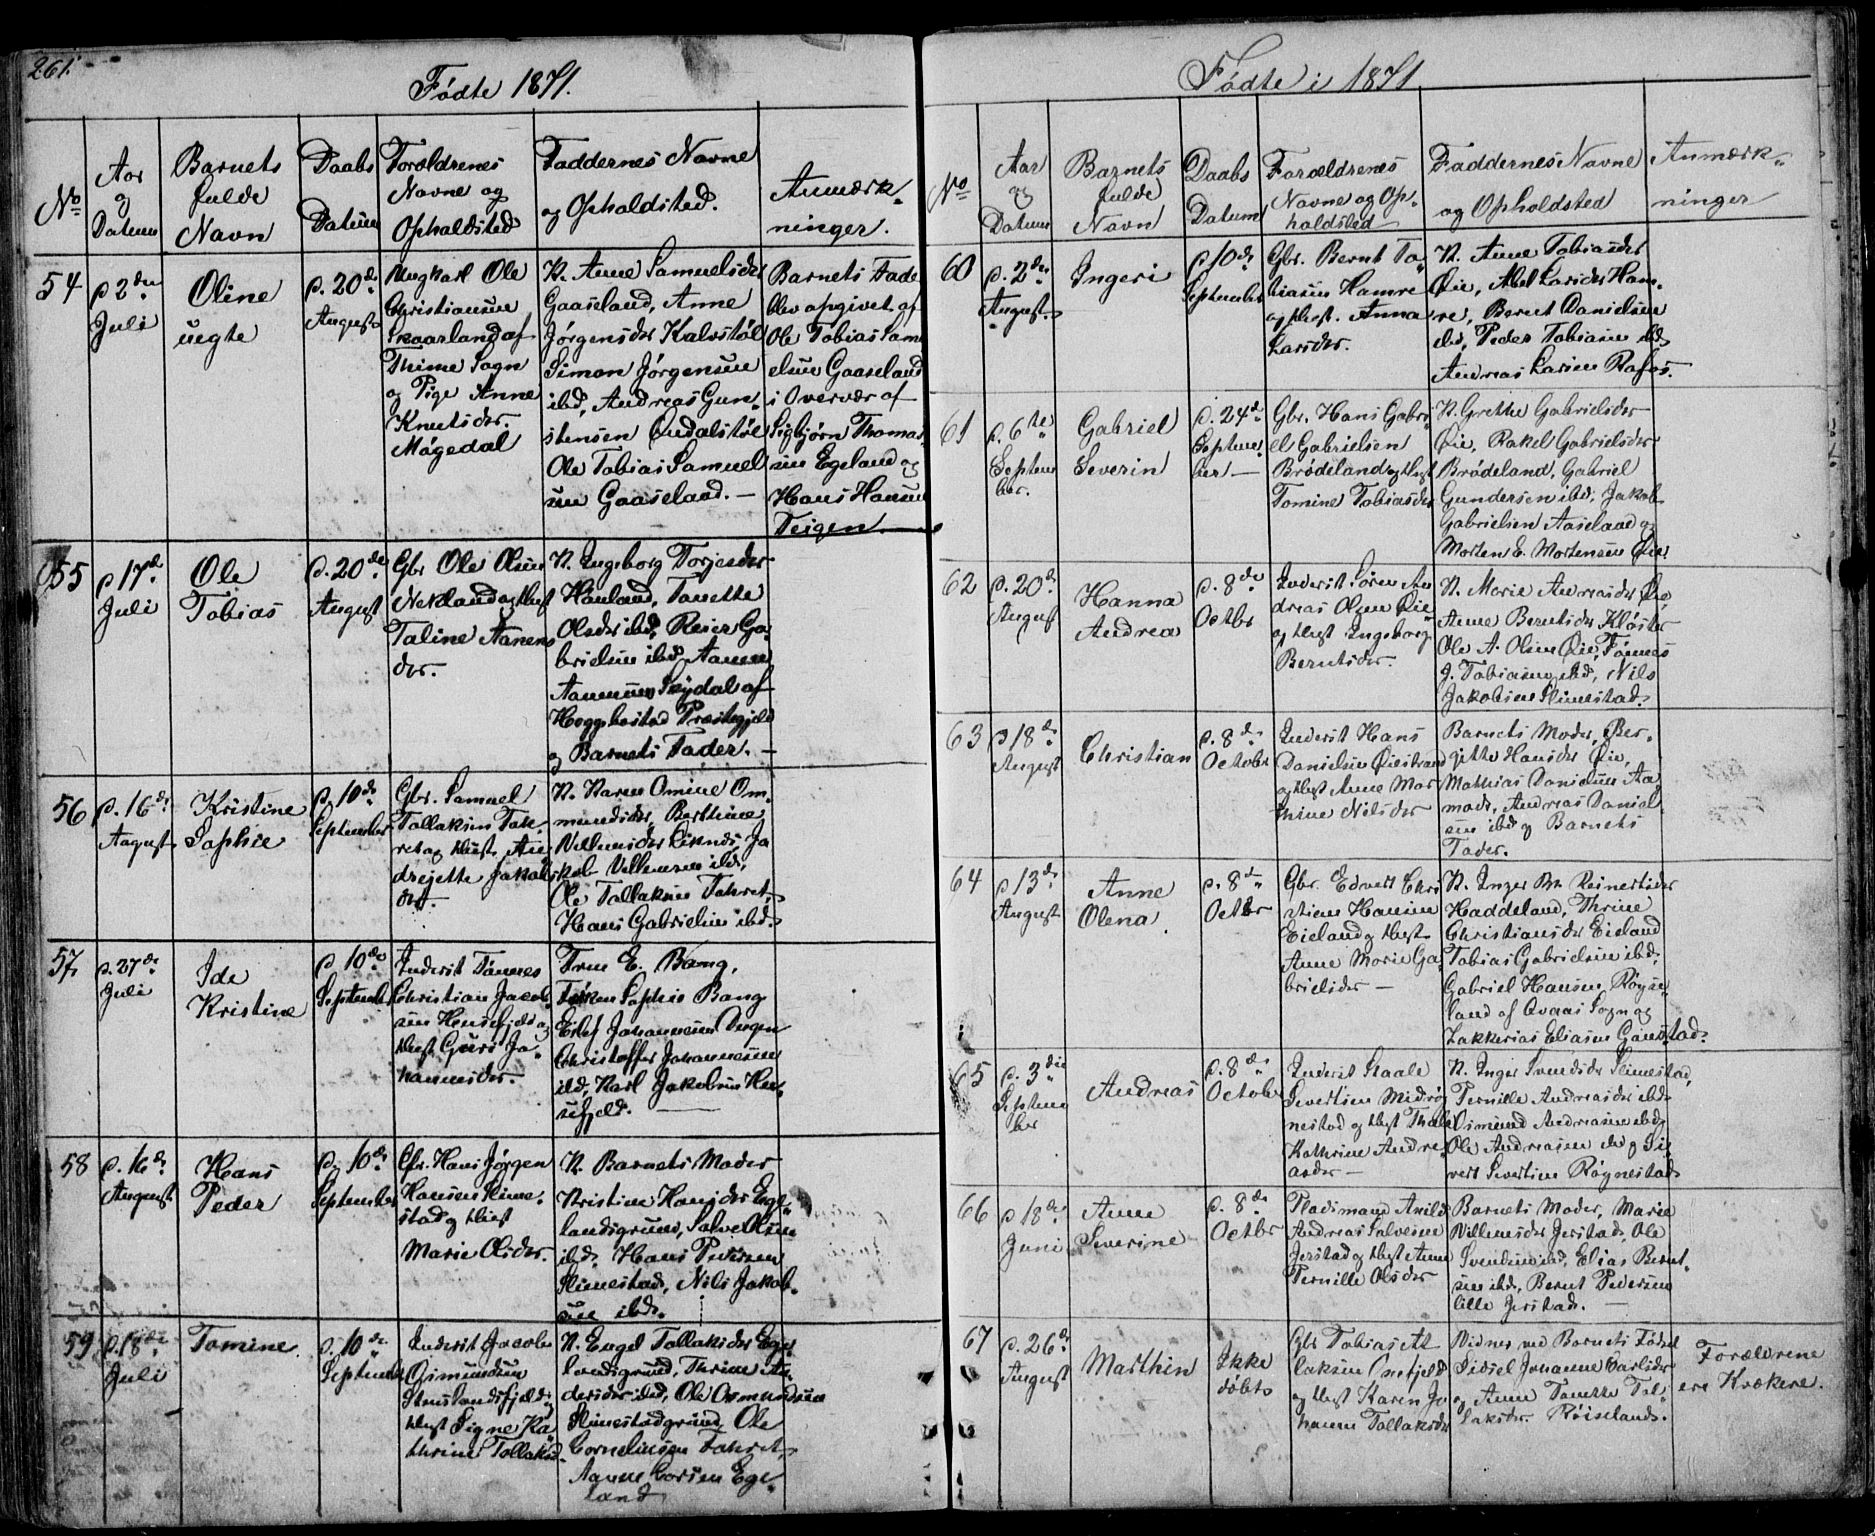 261.
Fødte 1871.
No
Aar
og
Datum
Barnets
fulde
Navn
Daabs
Datum
Forældrenes
Navne og
Opholdsted
Faddernes Navne
og Opholdsted.
Anmærk-
ninger.
54
d. 2den
Juli
Oline
uegte
d. 20de
August
Ungkarl Ole
Christiansen
Skaarland af
Thime Sogn
og Pige Anne
Knutsdr.
Møgedal
K. Anne Samuelsdr
Gaaseland, Anne
Jørgensdr Kalvstøl
Simon Jørgensen
ibd, Andreas Gun-
stensen
Ole Tobias Samuel
sen Gaaseland. —
Barnets Fader
blev opgivet af
Ole Tobias Sam
elsen Gaaseland
i Overvær af
Sigbjørn Thomas
sen Egeland og
Hans Hansen
Teigen.
55
d. 17de
Juli
Ole
Tobias
d. 20de
August
Gbr Ole Olsen
Nekland og Hust
Taline Aanens
dr.
K. Ingeborg Torjesdr
Hauland, Tonette
Olsdr ibd, Reier Ga
brielsen ibd, Aanen
Aanensen Seydal af
Heggebostad Præstegjeld
og Barnets Fader. —
56
d. 16de
August
Kristine
Sophie
d. 10de
September
Gbr. Samuel
Tallaksen Tah-
ret og Hust. An
drejette Jakobs
dr.
K. Karen Omine Om-
mundsdr, Berthine
Villumsdr Liknes, Ja
kob Villumsen ibd,
Ole Tallaksen Tahret,
Hans Gabrielsen ibd.
57
d. 27de
Juli
Ida
Kristine
d. 10de
September
Inderst Tønnes
Christian Jacob-
sen Heusefjeld og
Hust Guri Jo-
hannesdr.
Frue E. Bang,
Frøken Sophie Bang
Eilef Johannesen
Christoffer Johannesen
ibd, Karl Jakobsen Heu-
sefjeld. —
58
d. 16de
August
Hans
Peder
d. 10de
September
Gbr. Hans Jørgen
Hansen Slime-
stad og Hust
Marie Olsdr.
K. Barnets Moder
Kristine Hansdr Ege-
landsgrund, Salve Olsen
ibd. Hans Pedersen
Slimestad, Nils Jakob-
sen ibd.
59
d. 18de
Juli
Tomine
d. 10de
September
Inderst Jacob
Osmundsen
Stenslandsfjeld og
Hust Signe Ka-
thrine Tollaksd.
K. Engel Tallaksdr Ege
landsgrund, Thrine An-
dersdr ibd, Ole Osmundsen
Slimestadgrund, Ole
Corneliusen Tahret,
Aanen Larsen Ege-
land
Fødte i 1871
No
Aar
og
Datum
Barnets
fulde
Navn
Daabs
Datum
Forældrenes
Navne og Op-
holdsted
Faddernes Navne
og Opholdsted
Anmærk-
ninger
60
d. 2den
August.
Ingeri
d. 10de
September
Gbr. Bernt To-
biasen Hamre
og Hust. Anna
Larsdr.
K. Anne Tobiasdr
Øie, Abel Larsdr Ham-
re, Bernt Danielsen
ibd, Peder Tobiasen ibd,
Andreas Larsen Rafos.
61
d. 6te
Septem
ber.
Gabriel
Severin
d. 24de
Septem
ber —
Gbr. Hans Gabri
el Gabrielsen
Brødeland og Hust
Tomine Tobiasdr
K. Grethe Gabrielsdr
Øie, Rakel Gabrielsdr
Brødeland, Gabriel
Gundersen ibd, Jakob
Gabrielsen Aaseland og
Morten E. Mortensen Øie.
62
d. 20de
August
Hanna
Andrea
d. 8de
Octbr
Inderst Søren An
dreas Olsen Øie
og Hust Ingeborg
Berntsdr.
K. Marie Andreasdr Øie,
Anne Berntsdr Kloster
Ole A. Olsen Øie, Tønnes
J. Tobiasen ibd, Nils
Jakobsen Slimestad.
63
d. 18de
August
Christian
d. 8de
Octobr
Inderst Hans
Danielsen Øiestrand
og Hust Anne Mar
thine Nilsdr
Barnets Moder, Ber-
gitte Hansdr Øie,
Mathias Danielsen Aa
modt, Andreas Daniel
sen ibd og Barnets
Fader.
64
d. 13de
August
Anne
Olena.
d. 8de
Octbr
Gbr. Edvert Chri
stian Hansen
Eieland og Hust
Anne Marie Ga
brielsdr —
K. Inger Br. Reinertsdr
Haddeland, Thrine
Christiansdr Eieland
Tobias Gabrielsen ibd,
Gabriel Hansen Røyse-
land af Qvaas Sogn og
Zakkerias Eliasen Gaustad.
65
d. 3die
Septem
ber
Andreas
d. 8de
Octobr
Inderst Staale
Sivertsen Midrøg
nestad og Hust Thale
Kathrine Andre
asdr —
K. Inger Svendsdr Slimestad,
Pernille Andreasdr ibd
Osmund Andreasen ibd,
Ole Andreasen ibd og Si-
vert Sivertsen Røgnestad
66
d. 18de
Juni
Anne
Severine
d. 8de
Octbr
Pladsmand Arild
Andreas Salvesen
Jerstad og Hust Anne
Pernille Olsdr
Barnets Moder, Marie
Villumsdr Jerstad, Ole
Svendsen ibd, Elias Bernt-
sen ibd, Bernt Pedersen
lille Jerstad. —
67
d. 26de
August
Marthin
Ikke
døbt
Gbr Tobias At
laksen Omfjeld
og Hust Karen Jo
hanne Tallaksdr
Vidner ved Barnets Fødsel
Sidsel Johanne Carlsdr
og Anne Tonette Tol-
laksdr. Røiseland.
Forældrene
ere Kvækere.